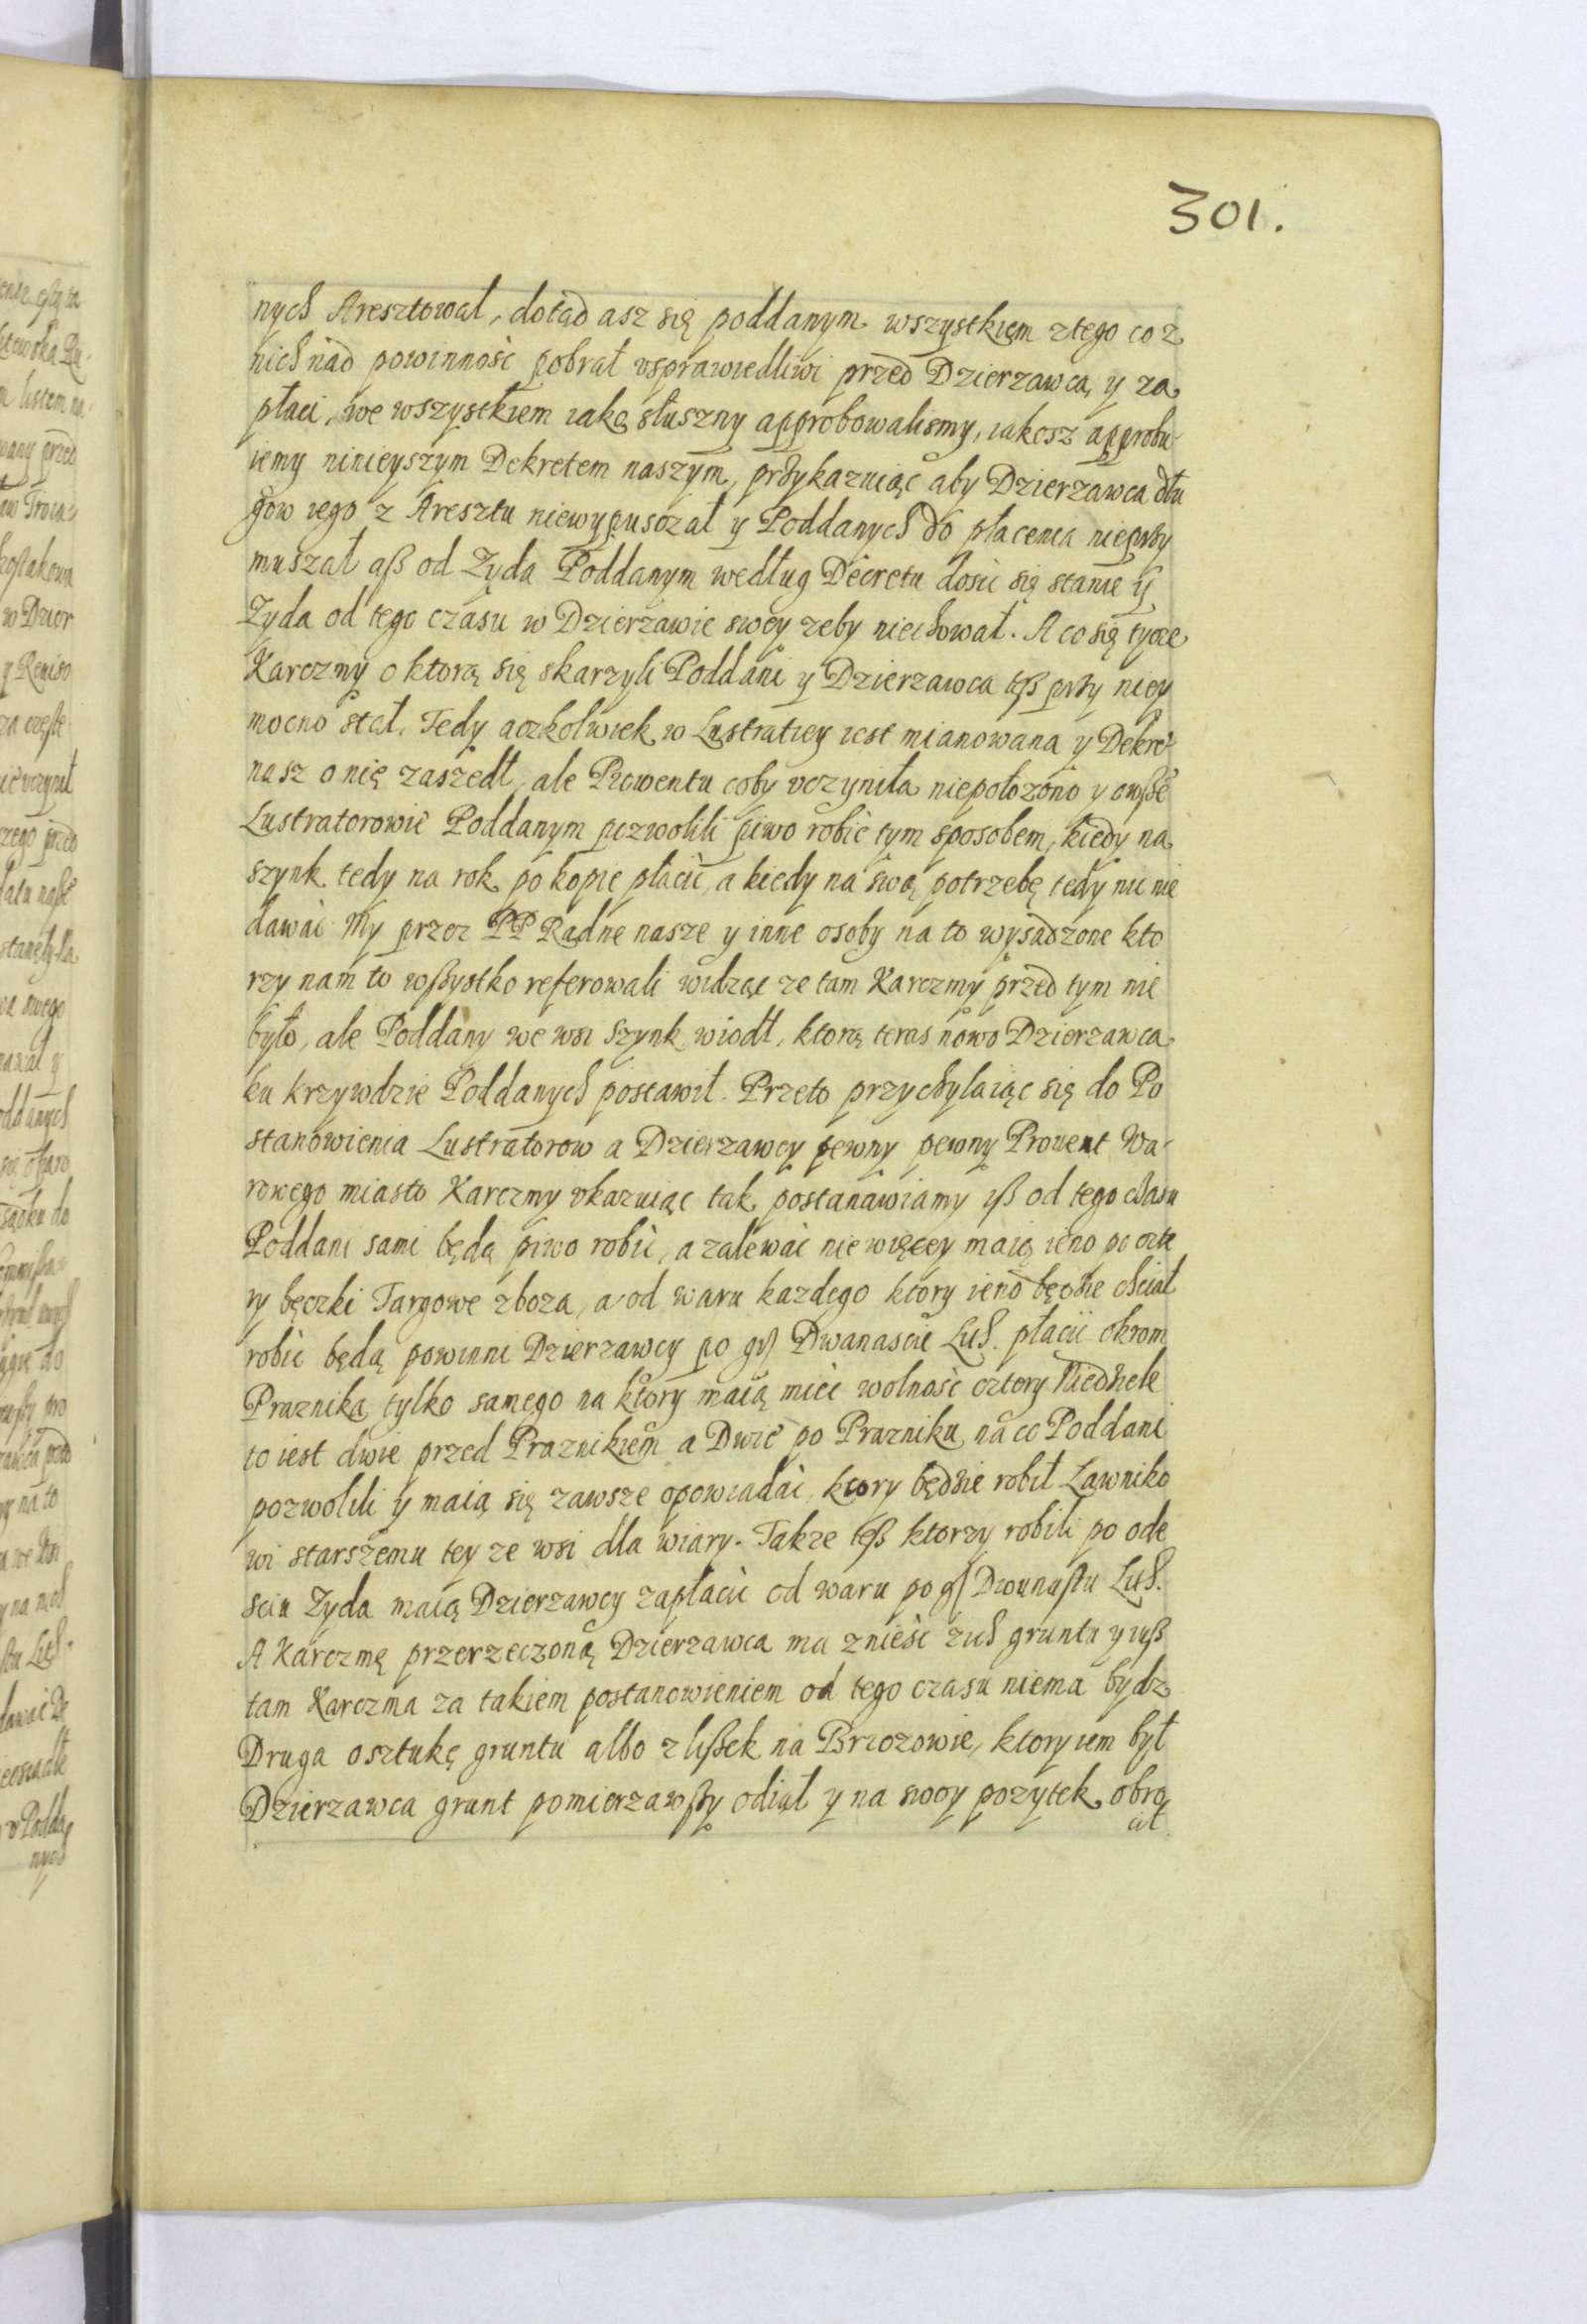 301.
nych Aresztował, dotąd asz się poddanym wszystkiem z tego co z
nich nad powinność pobrał usprawiedliwi przed Dzierzawcą y za
płaci, we wszystkiem iako słuszny approbowalismy, iakosz approbu
iemy ninieyszym Dekretem naszym, przykazuiąc aby Dzierzawca dłu
gow iego z Aresztu niewypusczał y Poddanych do płacenia nieprzy
muszał aß od Zyda Poddanym według Decretu dosic się stanie y
Zyda od tego czasu w Dzierzawie swey zeby niechował. A co się tycze
Karczmy o ktorą się skarzyli Poddani y Dzierzawca teß przy niey
mocno stał. Tedy aczkolwiek w Lustratiey iest mianowana y Dekre
nasz o nię zaszedł, ale Prowentu coby vczyniła niepołozono y owße
Lustratorowie Poddanym pozwolili piwo robic tym sposobem, kiedy na
szynk tedy na rok po kopie płacic, a kiedy na swą potrzebę tedy nic nie
dawac My przez PP Radne nasze y inne osoby na to wysadzone kto
rzy nam to wßystko referowali widząc ze tam Karczmy przed tym nie
było, ale Poddany we wsi szynk wiodł, ktorą teras nowo Dzierzawca
ku krzywdzie Poddanych postawił. Przeto przychylaiąc się do Po
stanowienia Lustratorow a Dzierzawcy pewny pewny Prouent Wa-
rowego miasto Karczmy vkazuiąc tak postanawiamy iß od tego czasu
Poddani sami będą piwo robic, a zalewac niewięcey maią ieno po czte
ry beczki Targowe zboza, a od waru kazdego ktory ieno będzie chciał
robic będą powinni Dzierzawcy po gß Dwanascie Lith. płacic okrom
Praznika tylko samego na ktory maią miec wolnosc cztery Niedziele
to iest dwie przed Praznikiem a Dwie po Prazniku na co Poddani
pozwolili y maią się zawsze opowiadac, ktory będzie robił Ławniko
wi starszemu tey ze wsi dla wiary. Takze teß ktorzy robili po ode
sciu Zyda maią Dzierzawcy zapłacic od waru po gß Dwunastu Lith.
A Karczmę przerzeczoną Dzierzawca ma zniesc z ich gruntu y iuß
tam Karczma za takiem postanowieniem od tego czasu niema bydz
Druga o sztukę gruntu albo zlißek na Brzozowie, ktory iem był
Dzierzawca grunt pomierzawßy odiął y na swoy pozytek obro
cił